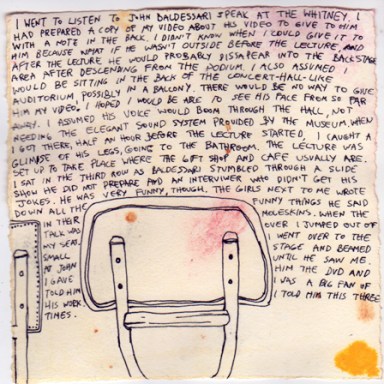 I WENT TO LISTEN TO JOHN BALDESSARI SPEAK AT THE WHITNEY. I
HAD PREPARED A COPY OF MY VIDEO ABOUT HIS VIDEO TO GIVE TO HIM
WITH A NOTE IN THE BACK. I DIDN'T KNOW WHEN I COULD GIVE IT TO
HIM BECAUSE WHAT IF HE WASN'T OUTSIDE BEFORE THE LECTURE, AND
AFTER THE LECTURE HE WOULD PROBABLY DISAPPEAR INTO THE BACKSTAGE
AREA AFTER DESCENDING FROM THE PODIUM. I ALSO ASSUMED I
WOULD BE SITTING IN THE BACK OF THE CONCERT-HALL-LIKE
AUDITORIUM POSSIBLY IN A BALLONY. THERE WOULD BE NO WAY TO GIVE
HIM MY VIDEO. I HOPED I WOULD BE ABLE TO SEE HIS FACE FROM SO FAR
AWAY. I ASSUMED HIS VOICE WOULD BOOM THROUGH THE HALL, NOT
NEEDING THE ELEGANT SOUND SYSTEM PROVIDED BY THE MUSEUM. WHEN
I GOT THERE, HALF AN HOUR BEFORE THE LECTURE STARTED, I CAUGHT A
GLIMPSE OF HIS LEGS, GOING TO THE BATHROOM. THE LECTURE WAS
SET UP TO TAKE PLACE WHERE THE GIFT SHOP AND CAFE USUALLY ARE.
I SAT IN THE THIRD ROW AS BALDESSARI STUMBLED THROUGH A SLIDE
SHOW HE DID NOT PREPARE AND AN INTERVIEWER WHO DIDN'T GET HIS
JOKES. HE WAS VERY FUNNY, THOUGH. THE GIRLS NEXT TO ME WROTE
DOWN ALL THE FUNNY THINGS HE SAID
IN THEIR MOLESKINS. WHEN THE
TALK WAS OVER I JUMPED OUT OF
MY SEAT. I WENT OVER TO THE
SMALL STAGE AND BEAMED
AT JOHN UNTIL HE SAW ME.
I GAVE HIM THE DVD AND
TOLD HIM I WAS A BIG FAN OF
HIS WORK. I TOLD HIM THIS THREE
TIMES.